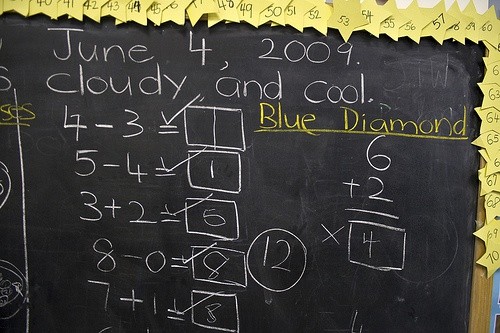 39 40 41 42 43 44 45 46 47 48 49 50 51 52 53 54 55 56 57 58 59 60
June 4, 2009.
cloudy and cool.
Blue Diamond
4 - 3 = 1
5 - 4 = 1
3 + 2 = 5
8 - 0 = 8
12
7 + 1 = 8
6
+ 2
× 4
63
64
65
66
67
68
69
70